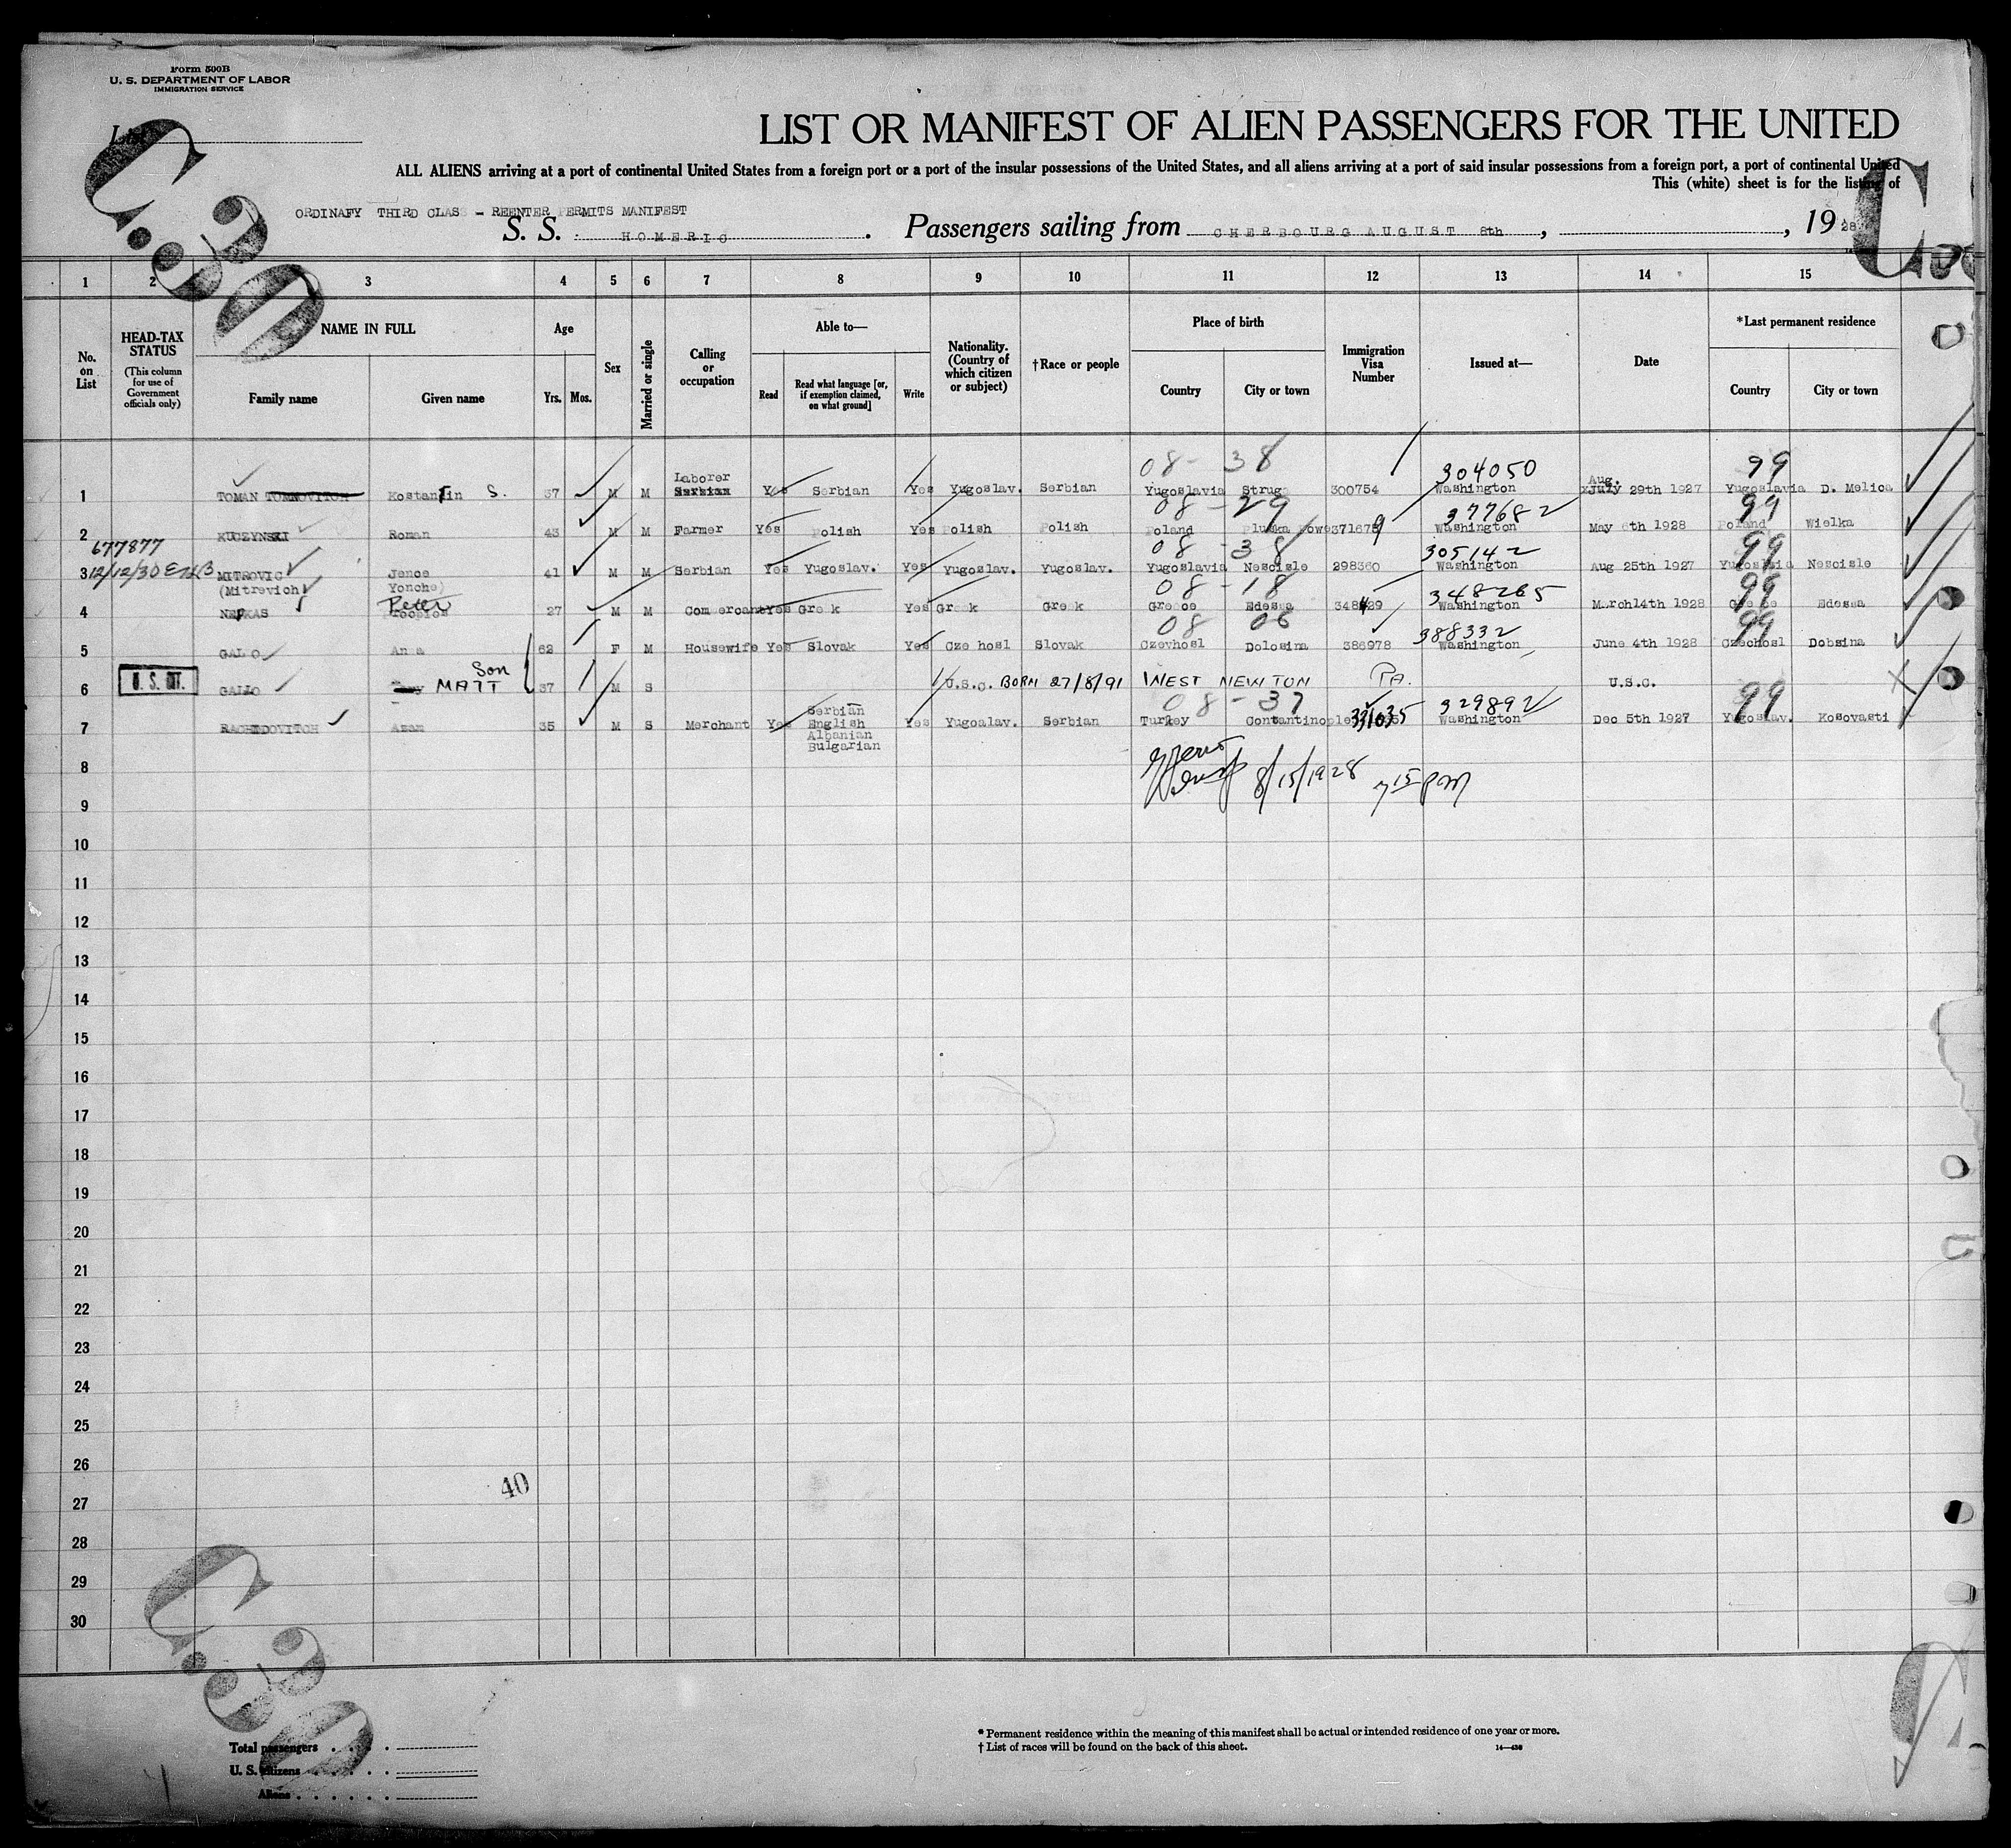 Form 500B
U. S. DEPARTMENT OF LABOR
IMMIGRATION SERVICE
LIST OR MANIFEST OF ALIEN PASSENGERS FOR THE UNITED
ALL ALIENS arriving at a port of continental United States from a foreign port or a port of the insular possessions of the United States, and all aliens arriving at a port of said insular possessions from a foreign port, a port of continental United
This (white) sheet is for the listing of
ORDINAFY THIRD CLASS - REENTER PERMITS MANIFEST
S. S. HOMERIC. Passengers sailing from CHERBOURG AUGUST 8th, , 1928
C.30
1 2 3 4 5 6 7 8 9 10 11 12 13 14 15
No. on List
HEAD-TAX STATUS
(This column for use of Government officials only)
NAME IN FULL
Family name Given name
Age
Yrs. Mos.
Sex
Married or single
Calling or occupation
Able to—
Read Read what language [or, if exemption claimed, on what ground] Write
Nationality. (Country of which citizen or subject)
†Race or people
Place of birth
Country City or town
Immigration Visa Number
Issued at—
Date
*Last permanent residence
Country City or town
08 - 38 304050 99
Laborer Aug.
1 TOMAN Kostantin S. 37 M M Serbian Yes Serbian Yes Yugoslav. Serbian Yugoslavia Struga 300754 Washington July 29th 1927 Yugoslavia D. Melica
08 - 29 377682 99
2 KUCZYNSKI Roman 43 M M Farmer Yes Polish Yes Polish Polish Poland Washington May 6th 1928 Poland Wielka
677877 08 - 38 305142 99
3 12/12/30 MITROVIC Jence 41 M M Serbian Yes Yugoslav. Yes Yugoslav. Yugoslav. Yugoslavia Nescisle 298360 Washington Aug 25th 1927 Yugoslavia Nescisle
(Mitrevich Yonche) 08 - 18 348265 99
4 Peter 27 M M Commercant Yes Greek Yes Greek Greek Greece Edessa Washington March14th 1928 Greece Edessa
08 06 388332 99
5 GALLO Anna 62 F M Housewife Yes Slovak Yes Czechosl Slovak Czevhosl Dolosina 386978 Washington June 4th 1928 Czechosl Dobsina
Son
6 U. S. CIT. GALLO MATT 37 M S U.S.C. BORN 27/8/91 WEST NEWTON PA. U.S.C.
08 - 37 329892 99
7 RACHIDOVITCH Azam 35 M S Merchant Yes Serbian Yes Yugoalav. Serbian Turkey Contantinople 331035 Washington Dec 5th 1927 Yugoslav. Kosovasti
English
Albanian
Bulgarian
8 8/15/1928 7 15 PM
9
10
11
12
13
14
15
16
17
18
19
20
21
22
23
24
25
26
40
27
28
29
30
C.30
Total passengers
U. S. citizens
Aliens
* Permanent residence within the meaning of this manifest shall be actual or intended residence of one year or more.
† List of races will be found on the back of this sheet.